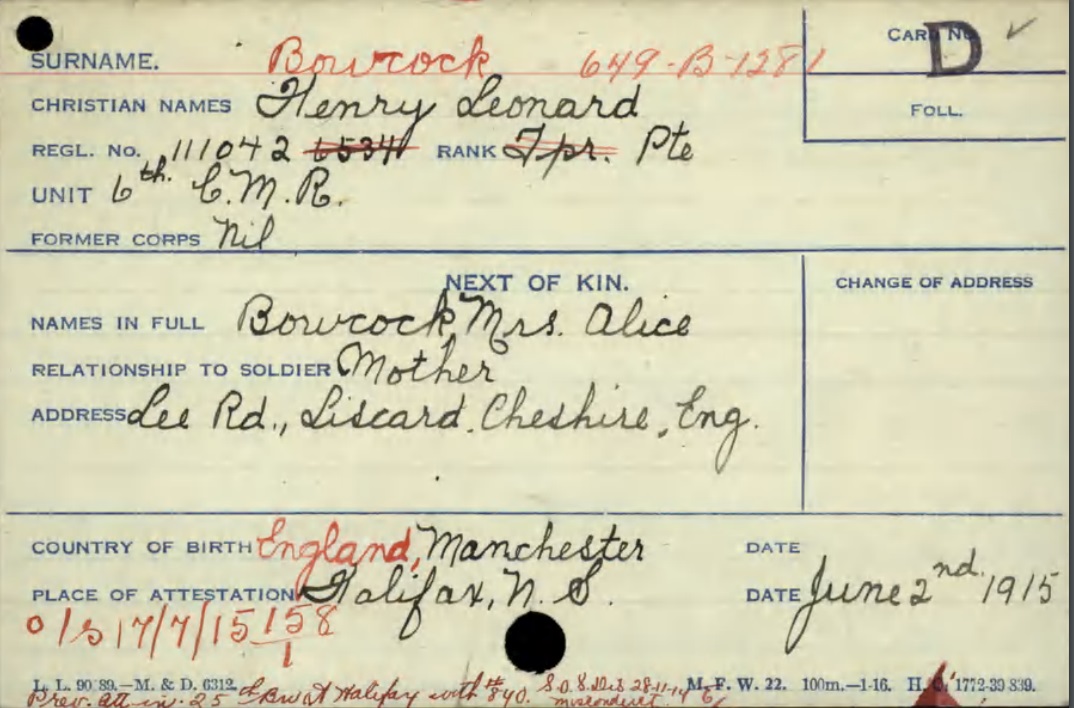 SURNAME. Bowcock 649-B-1281
CARD No. D ✓
CHRISTIAN NAMES Henry Leonard
FOLL.
REGL. No. 111042 RANK Tpr. Pte
UNIT 6th. C.M.R.
FORMER CORPS Nil
NEXT OF KIN.
CHANGE OF ADDRESS
NAMES IN FULL Bowcock, Mrs. Alice
RELATIONSHIP TO SOLDIER Mother
ADDRESS Lee Rd., Liscard, Cheshire, Eng.
COUNTRY OF BIRTH England, Manchester DATE
PLACE OF ATTESTATION Halifax, N. S. DATE June 2nd. 1915
o/s 17/7/15 158
1
L. L. 90 89.—M. & D. 6312. M. F. W. 22. 100m.—1-16. H. Q. 1772-39 839.
Prev. att. in. 25 Halifax with # 840. S.O.S. 28-11-14
misconduct